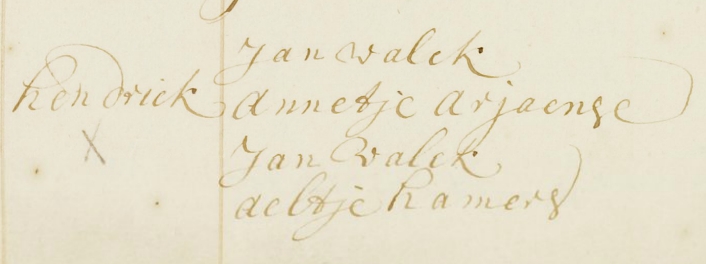 Jan valck
hendrick annetje arjaense
Jan valck
aeltje hamers